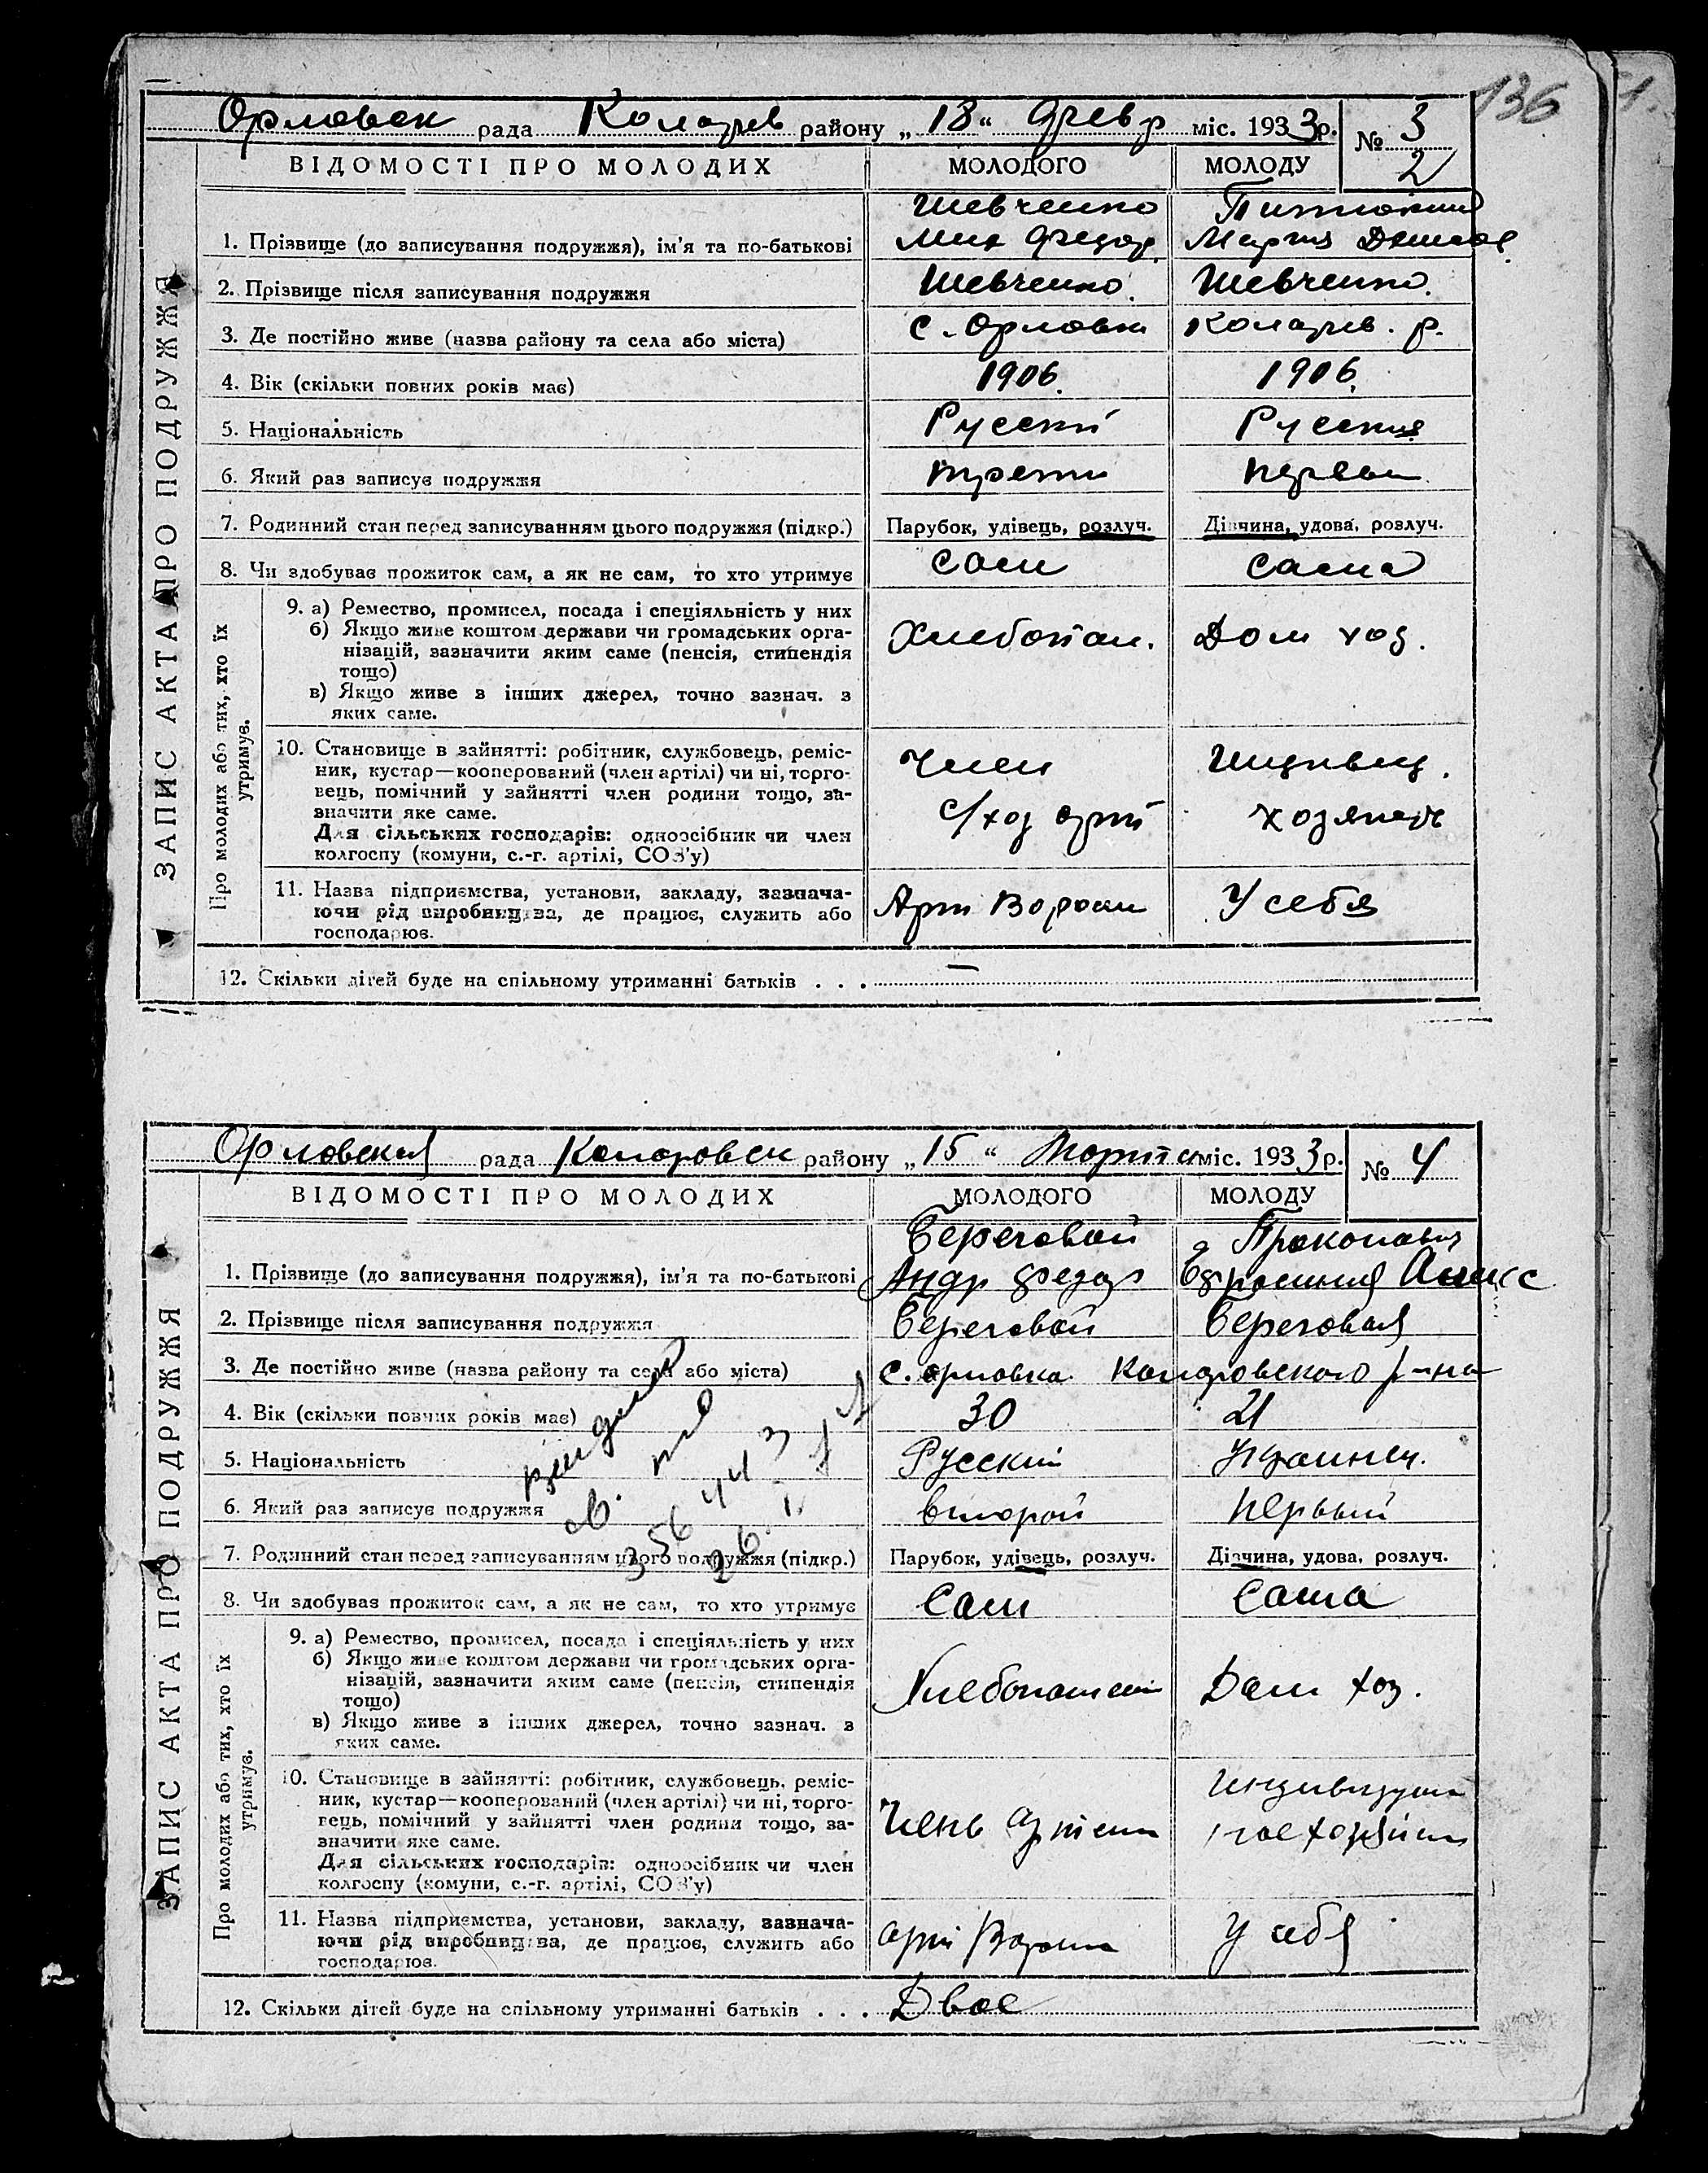 136
Орловск рада Коларев районy „18“ Февр міс. 1933р. № 3
2
ВІДОМОСТІ ПРО МОЛОДИХ МОЛОДОГО МОЛОДУ
ЗАПИС АКТА ПРО ПОДРУЖЖЯ
Шевченко
1. Прізвище (до записування подружжя), ім'я та по-батькові Мих Федор. Мария
2. Прізвище після записування подружжя Шевченко. Шевченко.
3. Де постійно живе (назва району та села або міста) с. Орловка Коларев. р.
4. Вік (скільки повних років має) 1906. 1906.
5. Національність Русский Русская
6. Який раз записує подружжя трети первы
7. Родинний стан перед записуванням цього подружжя (підкр.) Парубок, удівець, розлуч. Дівчина, удова, розлуч.
8. Чи здобуває прожиток сам, а як не сам, то хто утримує сам сама
Про молодих або тих, хто їх утримує.
9. а) Ремество, промисел, посада і спеціяльність у них
б) Якщо живе коштом держави чи громадських орга- Хлебопаш. Дом хоз.
нізацій, зазначити яким саме (пенсія, стипендія
тощо)
в) Якщо живе з інших джерел, точно зазнач. з
яких саме.
10. Становище в зайнятті: робітник, службовець, реміс- Член
ник, кустар—кооперований (член артілі) чи ні, торго-
вець, помічний у зайнятті член родини тощо, за-
значити яке саме. с/хоз арт
Для сільських господарів: одноосібник чи член
колгоспу (комуни, с.-г. артілі, СОЗ'у)
11. Назва підприємства, установи, закладу, зазнача-
ючи рід виробництва, де працює, служить або Арт Ворош У себя
господарює.
12. Скільки дітей буде на спільному утриманні батьків . . . —
Орловская рада районy „15“ Марта міс. 1933р. № 4
ВІДОМОСТІ ПРО МОЛОДИХ МОЛОДОГО МОЛОДУ
ЗАПИС АКТА ПРО ПОДРУЖЖЯ
Береговой
1. Прізвище (до записування подружжя), ім'я та по-батькові Андр Федор Ефросиния
2. Прізвище після записування подружжя Береговой Береговая
3. Де постійно живе (назва району та села або міста) с. Орловка Коларовского р-на
4. Вік (скільки повних років має) 30 21
5. Національність Русский Украинец.
6. Який раз записує подружжя второй первый
7. Родинний стан перед записуванням цього подружжя (підкр.) Парубок, удівець, розлуч. Дівчина, удова, розлуч.
8. Чи здобуває прожиток сам, а як не сам, то хто утримує Сам Сама
Про молодих або тих, хто їх утримує.
9. а) Ремество, промисел, посада і спеціяльність у них
б) Якщо живе коштом держави чи громадських орга-
нізацій, зазначити яким саме (пенсія, стипендія Дом хоз.
тощо)
в) Якщо живе з інших джерел, точно зазнач. з
яких саме.
10. Становище в зайнятті: робітник, службовець, реміс-
ник, кустар—кооперований (член артілі) чи ні, торго-
вець, помічний у зайнятті член родини тощо, за- Член Артели
значити яке саме.
Для сільських господарів: одноосібник чи член
колгоспу (комуни, с.-г. артілі, СОЗ'у)
11. Назва підприємства, установи, закладу, зазнача-
ючи рід виробництва, де працює, служить або арт Ворош У себя
господарює.
12. Скільки дітей буде на спільному утриманні батьків . . . Двое